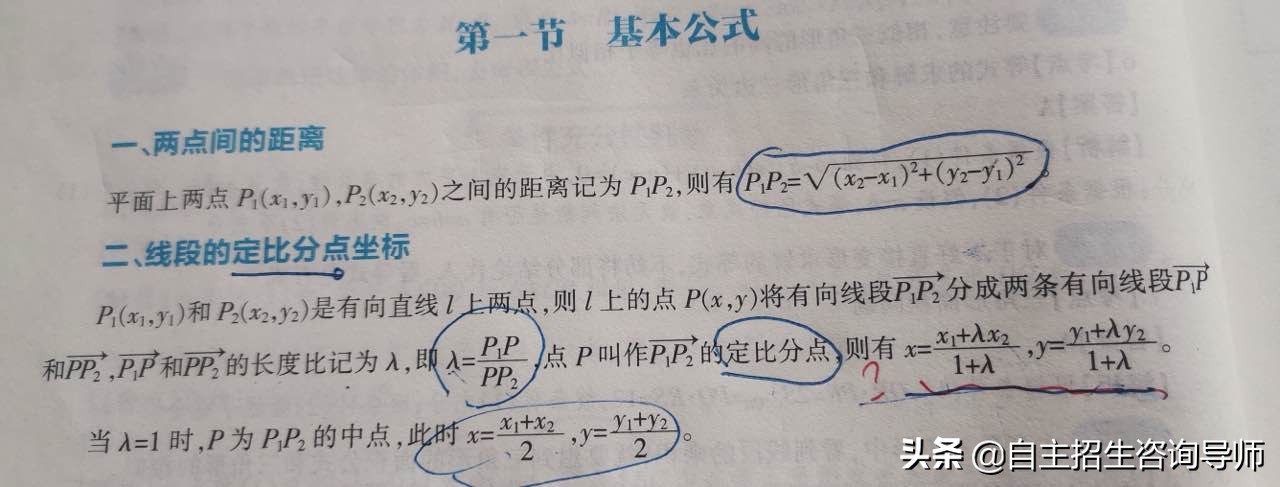 第一节 基本公式
一、两点间的距离
平面上两点 P₁(x₁,y₁),P₂(x₂,y₂)之间的距离记为 P₁P₂,则有 P₁P₂=√(x₂-x₁)²+(y₂-y₁)² 。
二、线段的定比分点坐标
P₁(x₁,y₁)和 P₂(x₂,y₂)是有向直线 l 上两点,则 l 上的点 P(x,y)将有向线段P₁P₂分成两条有向线段P₁P
和PP₂,P₁P和PP₂的长度比记为 λ,即 λ=P₁P/PP₂,点 P 叫作P₁P₂的定比分点,则有 x=(x₁+λx₂)/(1+λ),y=(y₁+λy₂)/(1+λ)。
?
当 λ=1 时,P 为 P₁P₂ 的中点,此时 x=(x₁+x₂)/2,y=(y₁+y₂)/2。
头条 @自主招生咨询导师